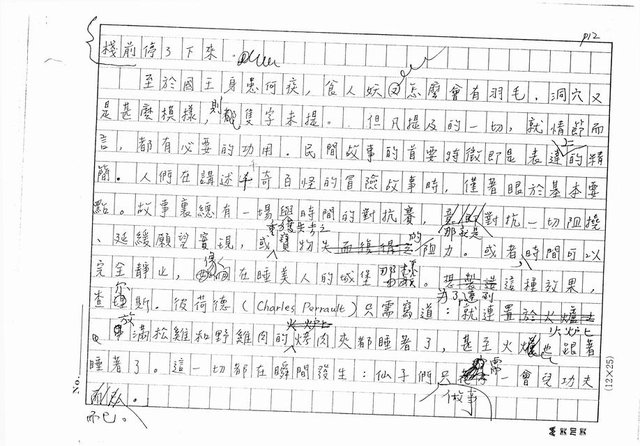 p12
棧前停了下來。
至於國王身患何疾，食人妖又怎麼會有羽毛，洞穴又
是甚麼模樣，則都隻字未提。但凡提及的一切，就情節而
言，都有必要的功用。民間故事的首要特徵即是表達上的精
簡。人們在講述千奇百怪的冒險故事時，僅著眼於基本要
點。故事裏總有一場與時間的對抗賽，那就是對抗一切阻撓
、延緩願望實現，或重獲失去之寶物的阻力。或者，時間可以
完全靜止，像在睡美人的城堡那樣。為了達到這種效果，
查爾斯．彼荷德（Charles Perrault）只需寫道：就連
放滿松雞和野雞肉的火爐上烤肉夾都睡著了，甚至火爐上火也跟著
睡著了。這一切都在瞬間發生：仙子們做事只需一會兒功夫
而已。
No.
(12×25)